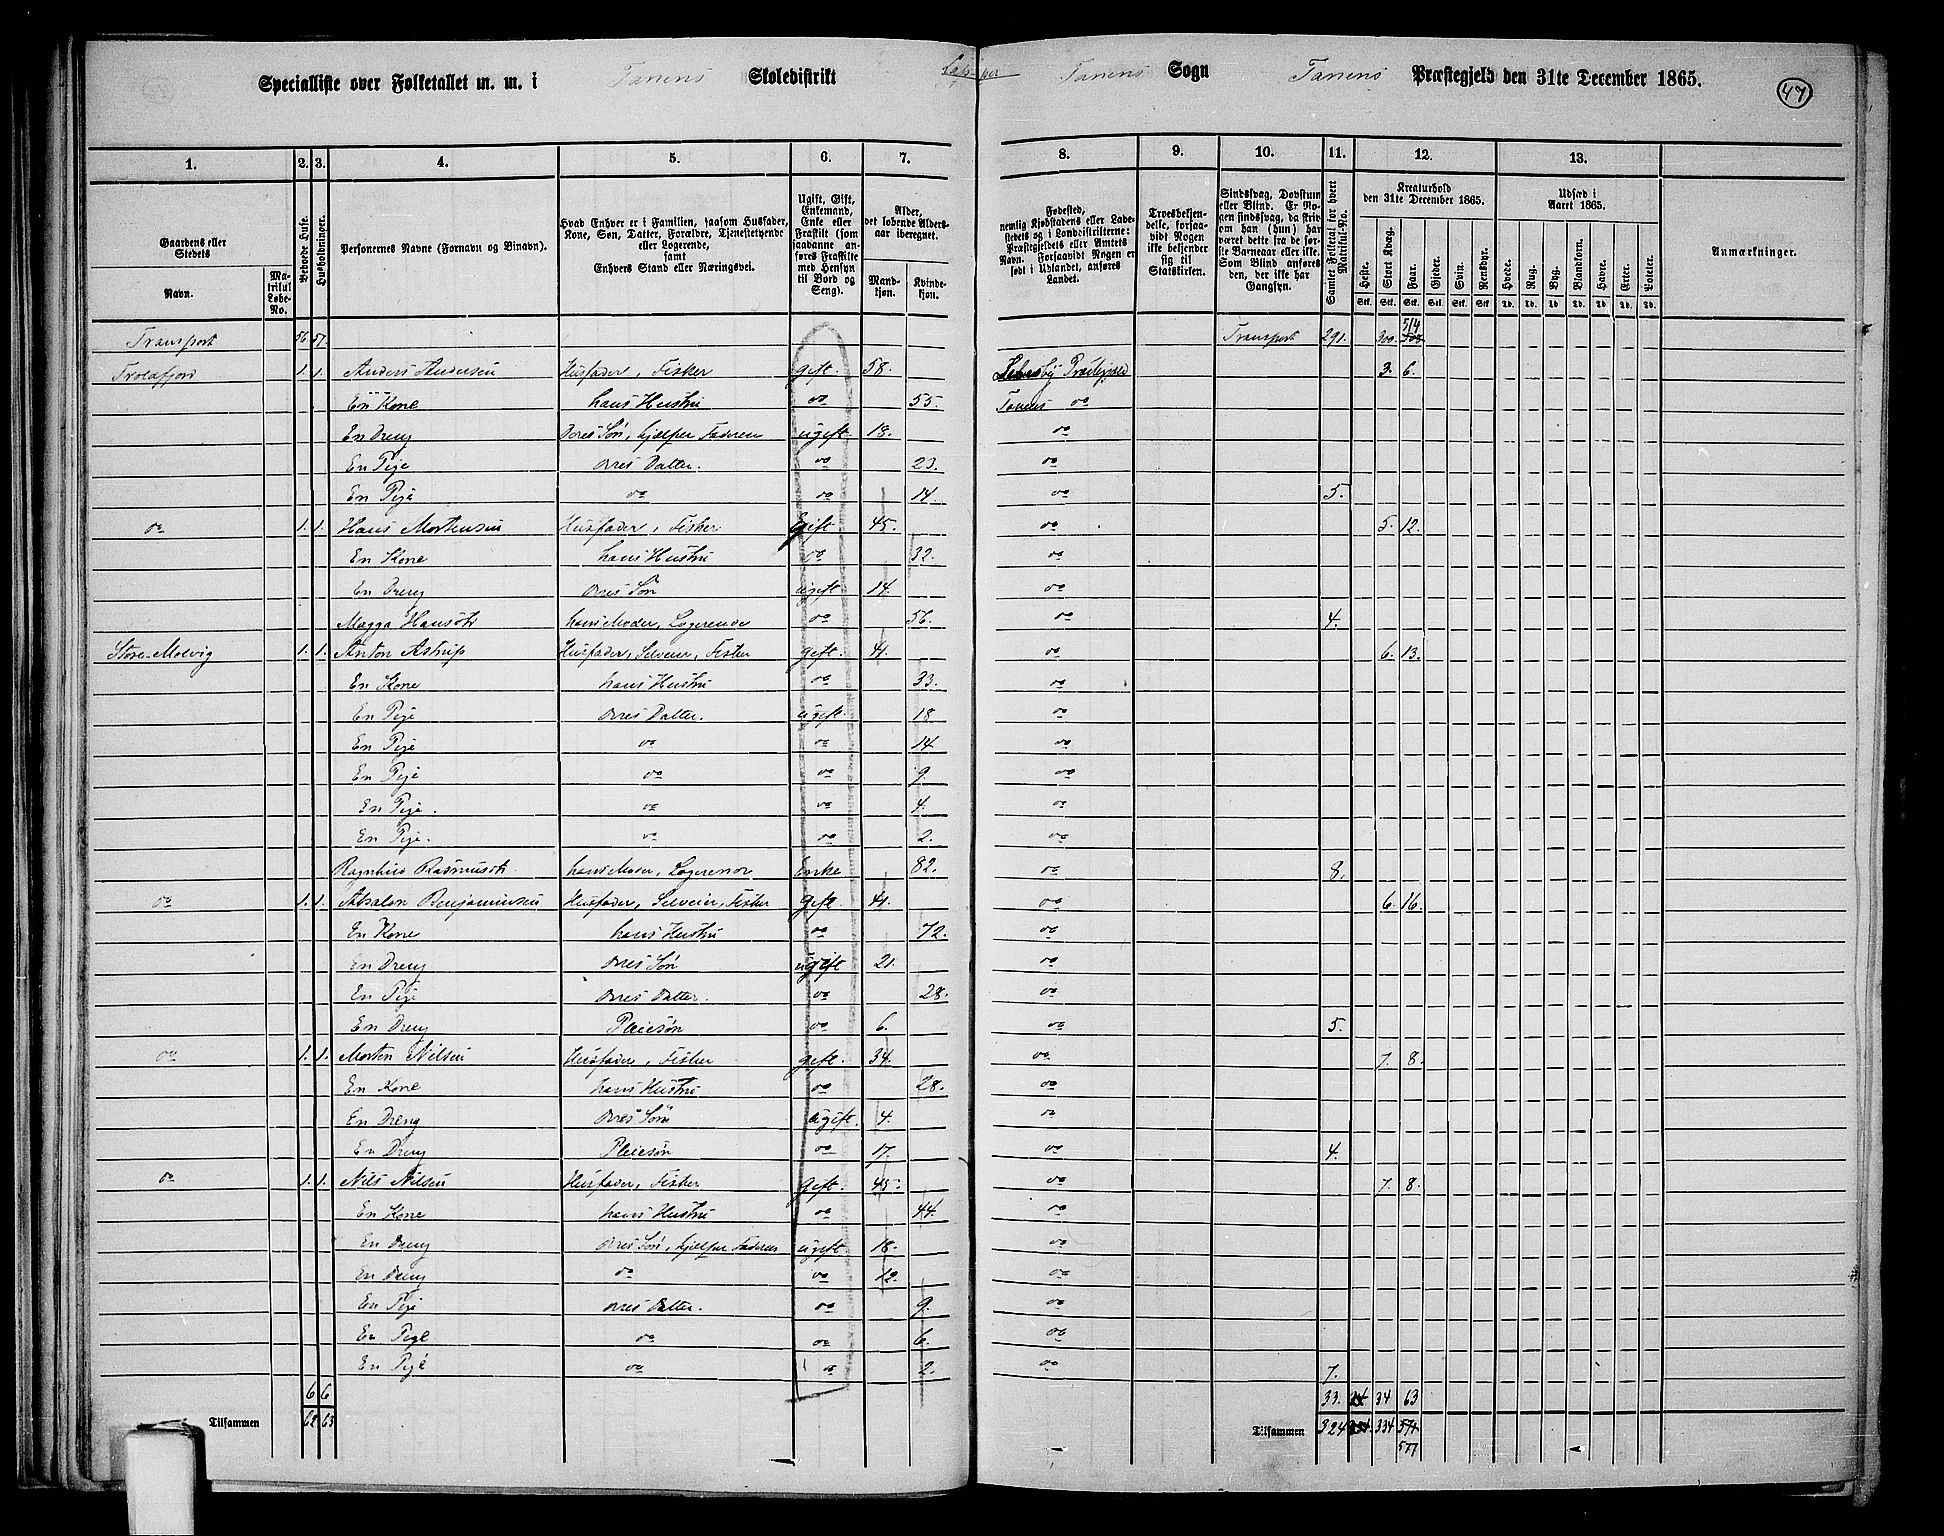 Specialliste over Folketallet m. m. i Tanens Skoledistrikt Tanens Sogn Tanens Præstegjeld den 31te December 1865. 47
1. 2. 3. 4. 5. 6. 7. 8. 9. 10. 11. 12. 13.
Gaardens eller Stedets Navn.
Matrikul Løbe-No.
Bebodde Huse.
Husholdninger.
Personernes Navne (Fornavn og Binavn).
Hvad Enhver er i Familien, saasom Husfader, Kone, Søn, Datter, Forældre, Tjenestetyende eller Logerende, samt Enhvers Stand eller Næringsvei.
Ugift, Gift, Enkemand, Enke eller Fraskilt (som saadanne anføres Fraskilte med Hensyn til Bord og Seng).
Alder, det løbende Aldersaar iberegnet.
Mandkjøn. Kvindekjøn.
Fødested, nemlig Kjøbstadens eller Ladestedets og i Landdistrikterne: Præstegjeldets eller Amtets Navn. Forsaavidt Nogen er født i Udlandet, anføres Landet.
Troesbekjendelse, forsaavidt Nogen ikke bekjender sig til Statskirken.
Sindssvag, Døvstum eller Blind. Er Nogen sindssvag, da skrives om han (hun) har været dette fra de første Barneaar eller ikke. Som Blind anføres den, der ikke har Gangsyn.
Samlet Folketal for hvert Matrikul-No.
Kreaturhold den 31te December 1865.
Heste. Stort Kvæg. Faar. Gjeder. Svin. Rensdyr.
Udsæd i Aaret 1865.
Hvede. Rug. Byg. Blandkorn. Havre. Erter. Poteter.
Anmærkninger.
Transport 56 57 Transport 291. 300 514
Trolafjord 1. 1. Anders Andersen Husfader, Fisker gift 58. Lebesby Præstegjeld 3. 6.
En Kone hans Hustru do 55. Tanens do
En Dreng Deres Søn, hjælper Faderen ugift 18. do
En Pige deres Datter. do 23. do
En Pige do do 14. do 5.
do 1. 1. Hans Mortensen Husfader, Fisker Gift 45. do 5. 12.
En Kone hans Hustru do 32. do
En Dreng deres Søn ugift 14. do
Magga Hansdtr hans Moder, Logerende do 56. do 4.
Store-Molvig 1. 1. Anton Astrup Husfader, Selveier, Fisker gift. 41. do 6. 13.
En Kone hans Hustru do 33. do
En Pige deres Datter. ugift. 18 do
En Pige do do 14. do
En Pige do do 9. do
En Pige. do do 4. do
En Pige. do do 2. do
Ragnhild Rasmusdt hans Moder, Logerende Enke 82. do 8.
do 1. 1. Absalon Benjaminsen Husfader, Selveier, Fisker gift. 41. do 6. 16.
En Kone hans Hustru do 72. do
En Dreng deres Søn ugift 21. do
En Pige deres Datter. do 28. do
En Dreng Pleiesøn do 6. do 5.
do 1. 1. Morten Nilsen Husfader, Fisker gift. 34. do 7. 8.
En Kone hans Hustru do 28. do
En Dreng deres Søn ugift. 4. do
En Dreng Pleiesøn do 17. do 4.
do 1. 1. Nils Nilsen Husfader, Fisker gift. 45. do 7. 8.
En Kone hans Hustru do 44. do
En Dreng deres Søn, hjælper Faderen ugift 18. do
En Dreng do do 12. do
En Pige deres Datter. do 9. do
En Pige do do 6. do
En Pige do do 2. do 7.
6 6 33. 34 63
Tilsammen 62 63 Tilsammen 324 334 577
577